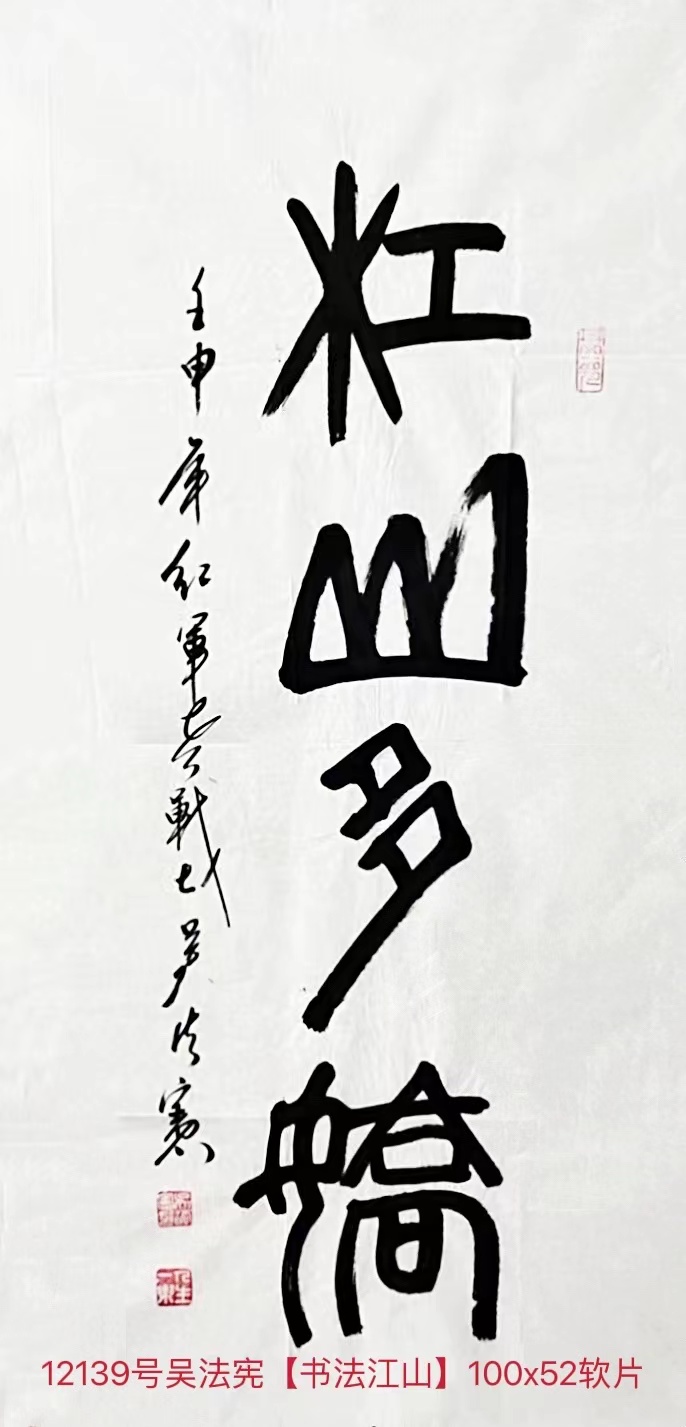 江山多嬌
壬申年红軍老战士吴法宪
12139号吴法宪【书法江山】100x52软片